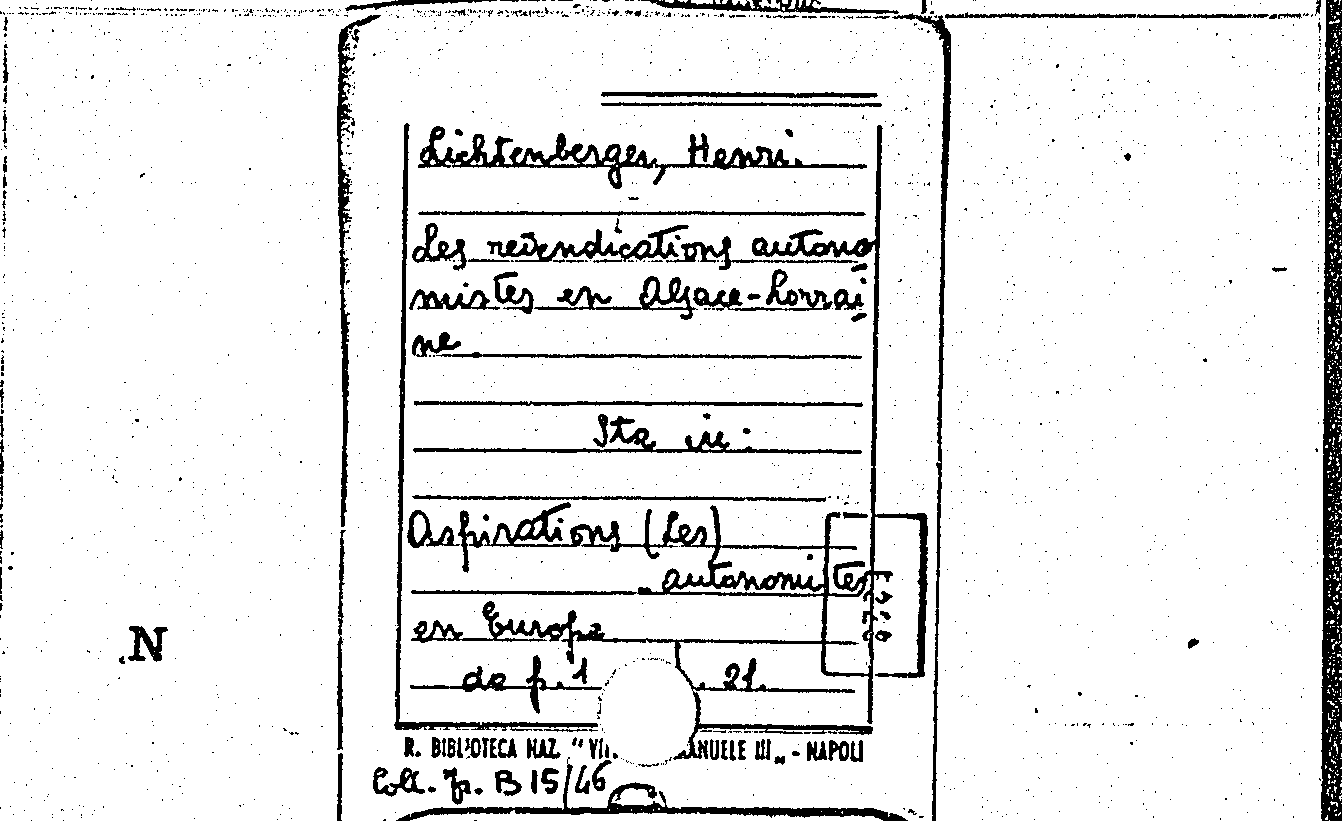 Lichtenberger, Henri.
Les revendications autono
mistes en Alsace-Lorrai
ne.
Sta in:
Aspirations (Les)
autonomistes
en Europe
da p. 1 21.
R. BIBLIOTECA NAZ. "VIT ANUELE III„ - NAPOLI
Coll. fr. B 15/46
N